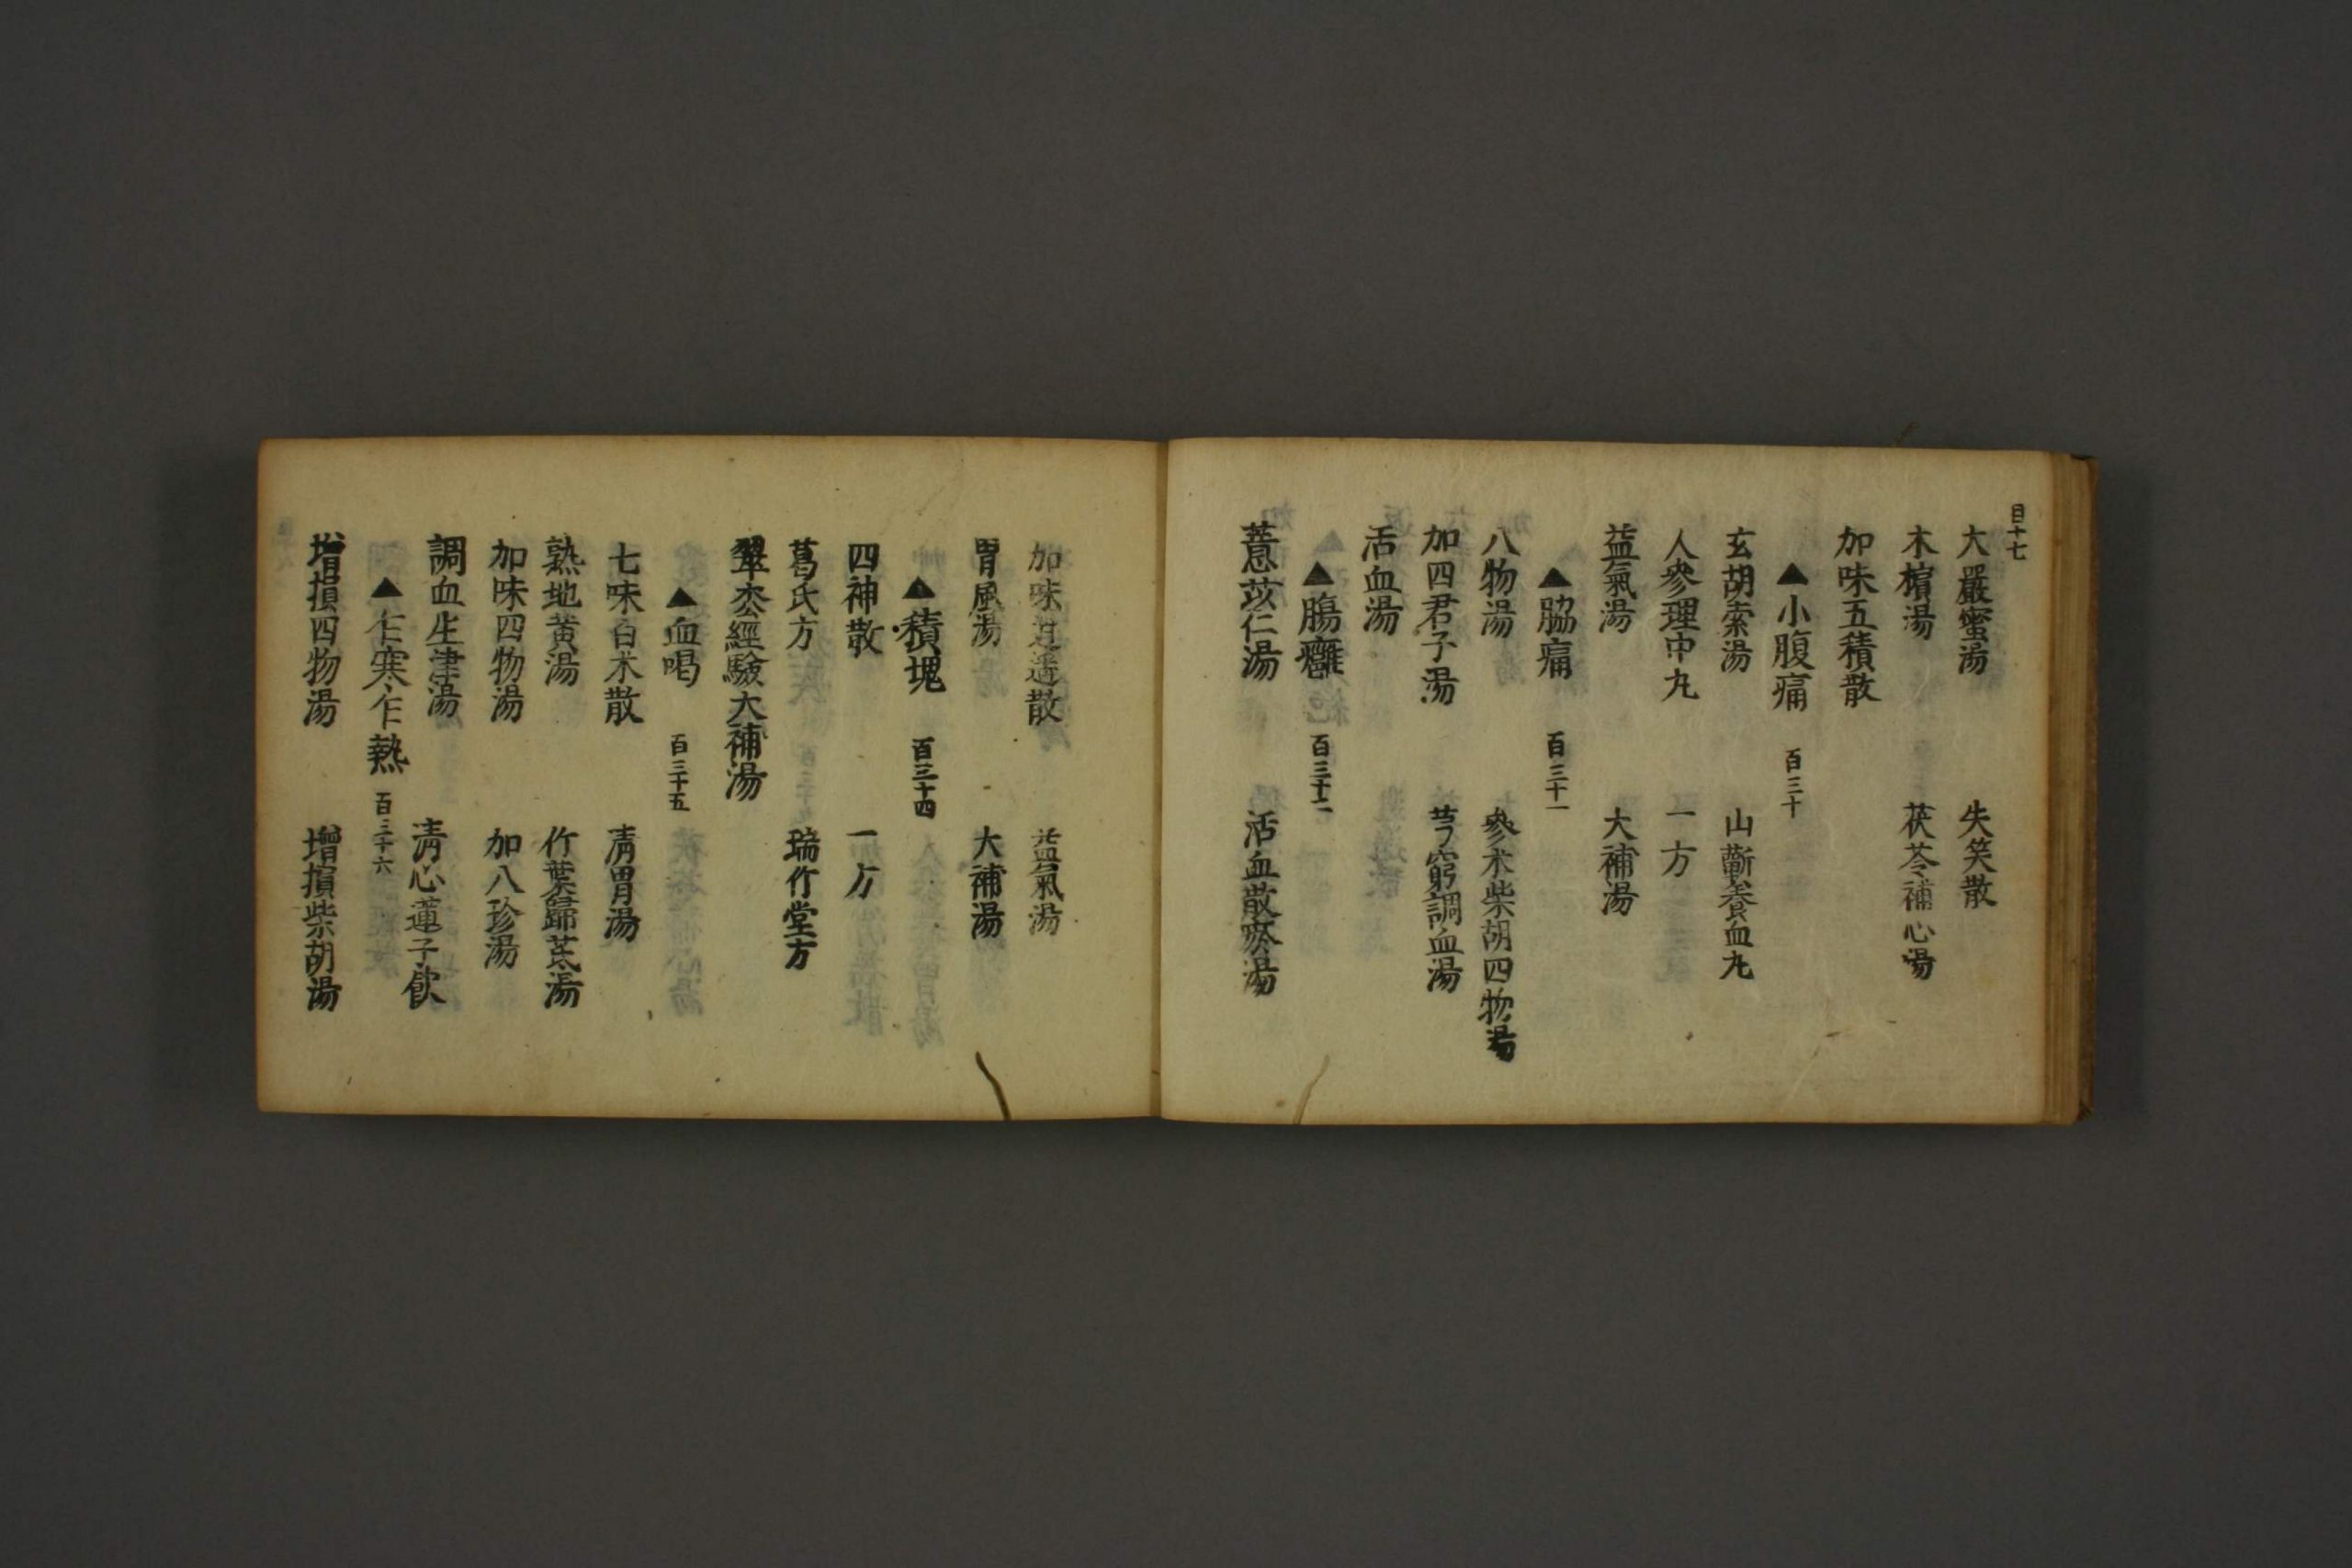 目十七
大嚴蜜湯　失笑散
木檳湯　茯苓補心湯
加味五積散
▲小腹痛　百三十
玄胡索湯　山蘄養血丸
人參理中丸　一方
益氣湯　大補湯
▲脇痛　百三十一
八物湯　參朮柴胡四物湯
加四君子湯　芎窮調血湯
活血湯
▲腸癰　百三十二
薏苡仁湯　活血散瘀湯
加味逍遥散　益氣湯
胃風湯　大補湯
▲積塊　百三十四
四神散　一方
葛氏方　瑞竹堂方
經驗大補湯
▲血喝　百三十五
七味白朮散　清胃湯
熟地黃湯　竹葉歸茋湯
加味四物湯　加八珍湯
調血生津湯　清心蓮子飲
▲乍寒乍熱　百三十六
增損四物湯　增損柴胡湯